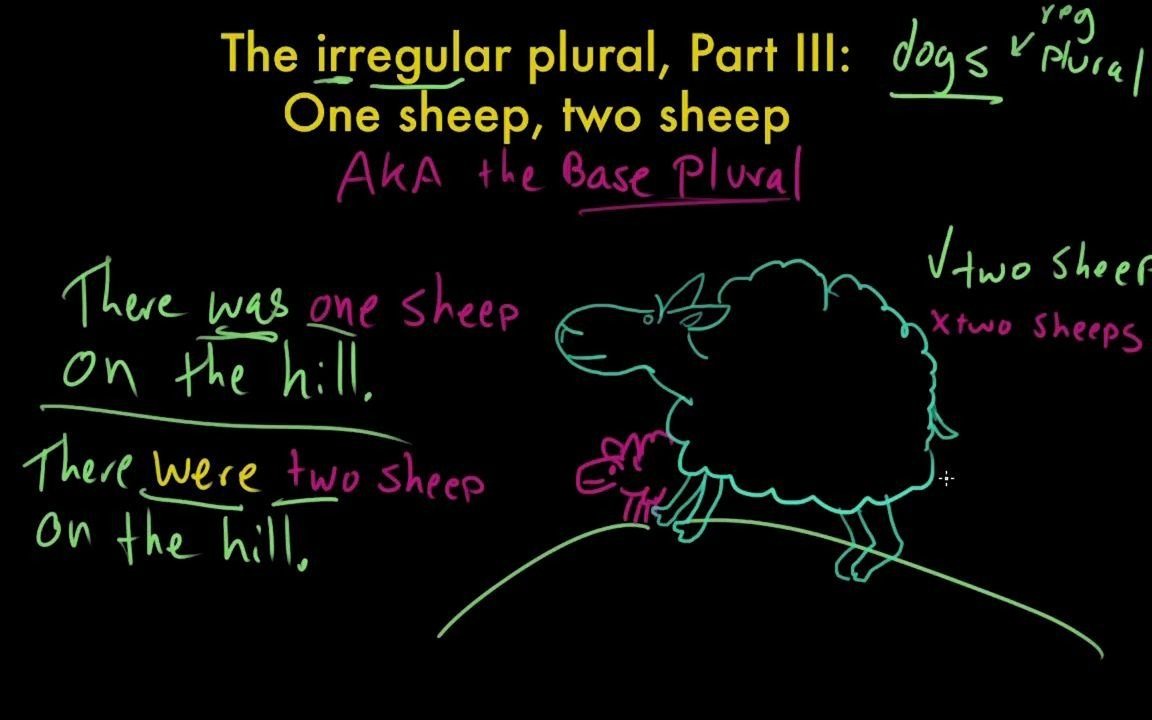 The irregular plural, Part III:
One sheep, two sheep
dogs
reg
plural
AKA the Base Plural
There was one sheep
on the hill.
There were two sheep
on the hill.
✓two sheep
xtwo sheeps